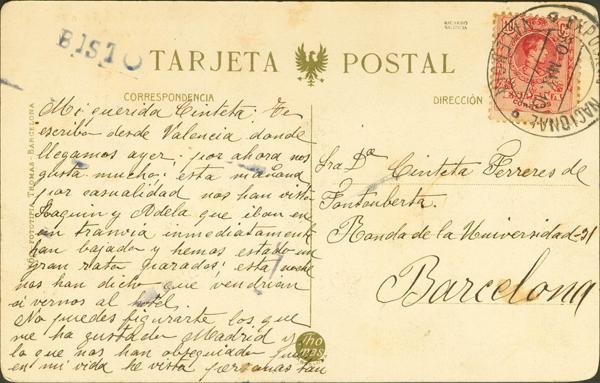 BISTO
TARJETA POSTAL
CORRESPONDENCIA
DIRECCIÓN
RICARDO
VALENCIA
EXPOSICION NACIONAL
VALENCIA
FOTOTIPIA THOMAS-BARCELONA
Mi querida Cinteta: Te
escribo desde Valencia donde
llegamos ayer; por ahora nos
gusta mucho; esta mañana
por casualidad nos han visto
Joaquin y Adela que iban en
un tranvia inmediatamente
han bajado y hemos estado un
gran rato parados; esta noche
nos han dicho que vendrian
a vernos al hotel.
No puedes figurarte los que
me ha gustado Madrid y
lo que nos han obsequiado pues
en mi vida he visto personas tan
Sra Dª Cinteta Ferreres de
Fontcuberta.
Ronda de la Universidad-31
Barcelona
thomas